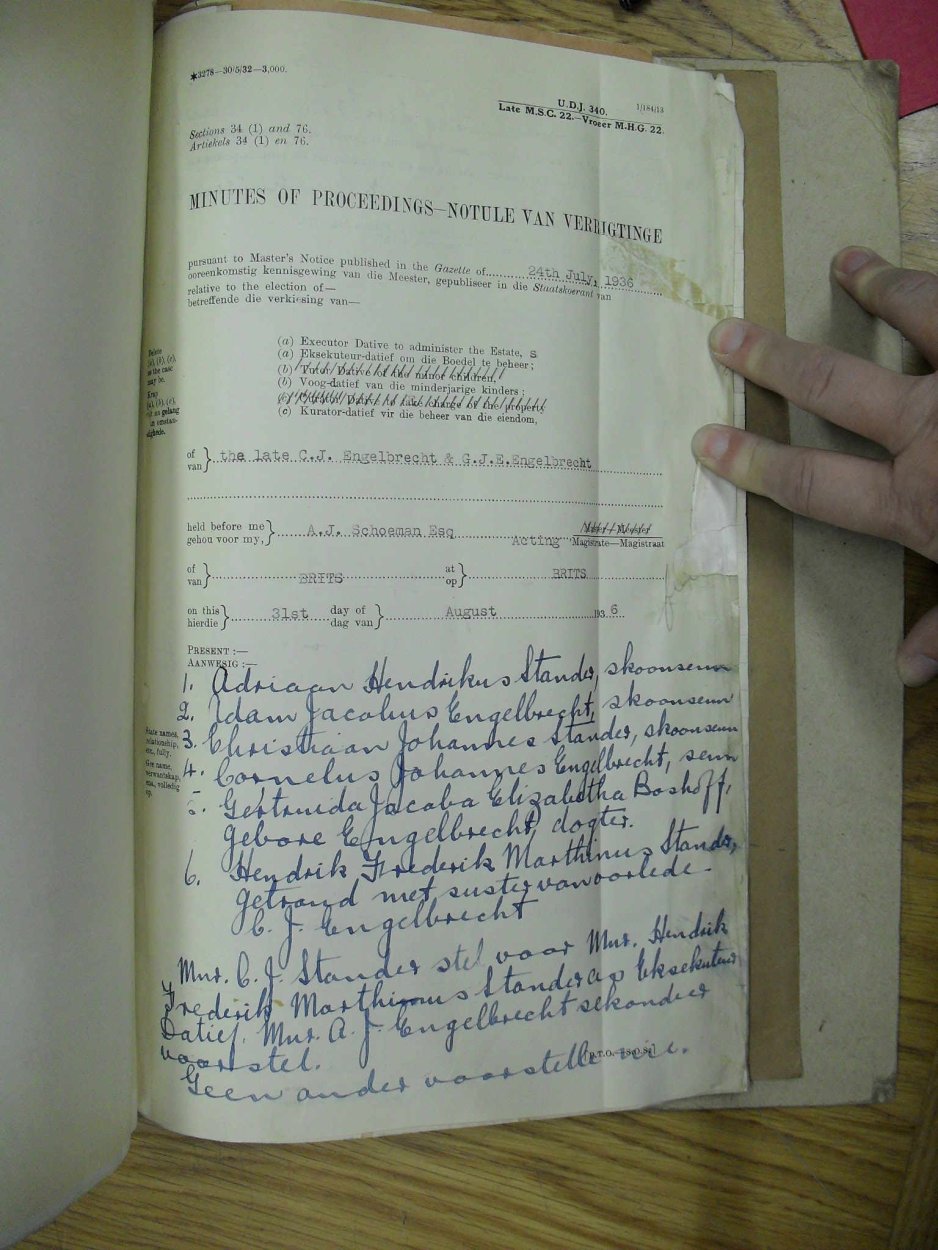 *3278—30/5/32—3,000.
U.D.J. 340. 1/184/13
Late M.S.C. 22.—Vroeër M.H.G. 22.
Sections 34 (1) and 76.
Artiekels 34 (1) en 76.
MINUTES OF PROCEEDINGS—NOTULE VAN VERRIGTINGE
pursuant to Master's Notice published in the Gazette of 24th July, 1936
ooreenkomstig kennisgewing van die Meester, gepubliseer in die Staatskoerant van
relative to the election of—
betreffende die verkiesing van—
(a) Executor Dative to administer the Estate, s
(a) Eksekuteur-datief om die Boedel te beheer;
(b) Tutor Dative of the minor children,
(b) Voog-datief van die minderjarige kinders;
(c) Curator Dative to take charge of the property,
(c) Kurator-datief vir die beheer van die eiendom,
Delete
(a), (b), (c),
as the case
may be.
Krap
(a), (b), (c),
uit na gelang
van omstan-
dighede.
of
van } the late C.J. Engelbrecht & G.J.E.Engelbrecht
held before me
gehou voor my, } A.J. Schoeman Esq Acting
Magistrate—Magistraat
of
van } BRITS at
op } BRITS
on this
hierdie } 31st day of
dag van } August 1936
PRESENT :—
AANWESIG :—
State names,
relationship,
etc., fully.
Gee name,
verwantskap,
ens., volledig
op.
1. Adriaan Hendrikus Stander, skoonseun
2. Adam Jacobus Engelbrecht, skoonseun
3. Christiaan Johannes Stander, skoonseun
4. Cornelus Johannes Engelbrecht, seun
5. Gertruida Jacoba Elizabetha Boshoff,
gebore Engelbrecht, dogter.
6. Hendrik Frederik Marthinus Stander,
getroud met suster van oorlede
C. J. Engelbrecht
Mnr. C. J. Stander stel voor Mnr. Hendrik
Frederik Marthinus Stander as Eksekuteur
Datief. Mnr. A. J. Engelbrecht sekondeer
voorstel.
Geen ander voorstelle nie.